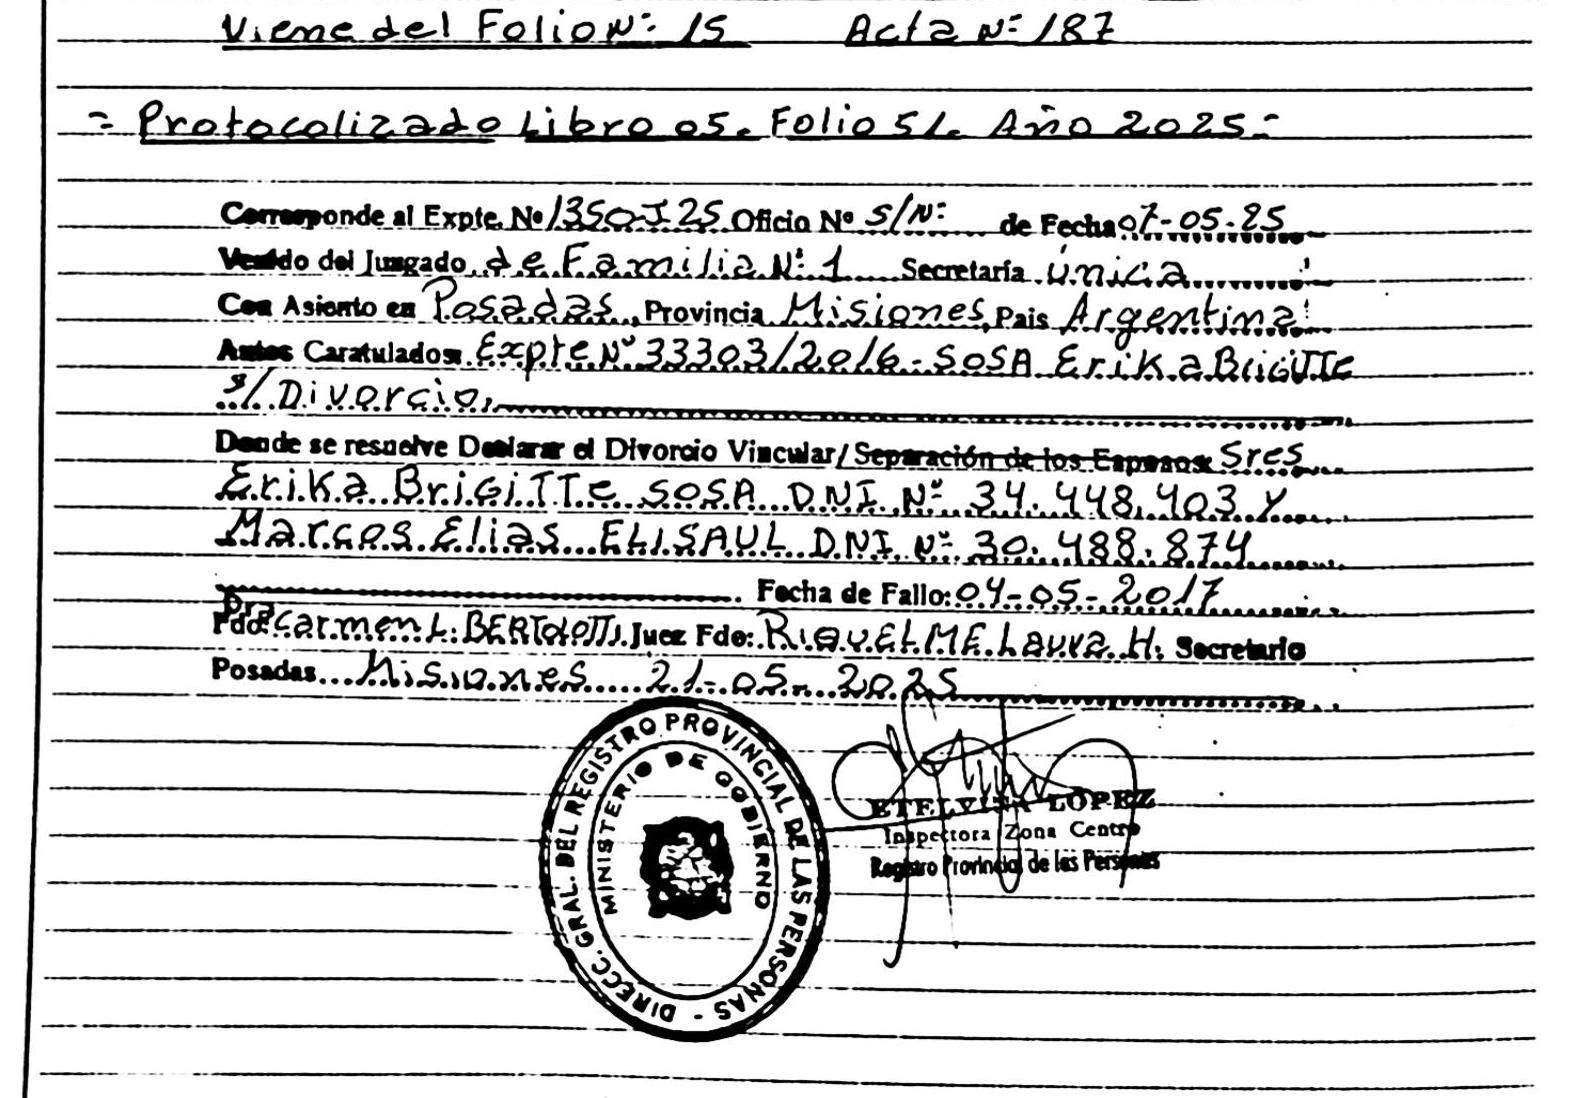 Viene del Folio Nº: 15 Acta Nº 187
= Protocolizado Libro 05. Folio 51. Año 2025.-
Corresponde al Expte. Nº 1350-J 25 Oficio Nº S/Nº: de Fecha 07-05-25
Venido del Juzgado de Familia Nº 1 Secretaría Única
Con Asiento en Posadas, Provincia Misiones, Pais Argentina
Autos Caratulados: Expte Nº 33303/2016 - SOSA Erika BrigiTTe
s/ Divorcio,
Donde se resuelve Declarar el Divorcio Vincular/Separación de los Esposos: Sres
Erika BrigiTTe SOSA DNI Nº 34.448.403 y
Marcos Elias ELISAUL DNI Nº 30.488.874
Fecha de Fallo: 04-05-2017
Fdo: Dra Carmen L. BERToloTTi Juez Fdo: RiQUELME Laura H. Secretario
Posadas Misiones 21-05-2025
DIRECC. GRAL. DEL REGISTRO PROVINCIAL DE LAS PERSONAS -
MINISTERIO DE GOBIERNO
ETELVINA LOPEZ
Inspectora Zona Centro
Registro Provincial de las Personas